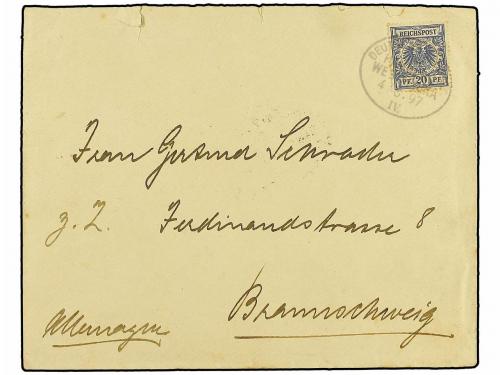 REICHSPOST
20 PF.
97
IV
Frau Gertrud Schrader
z. Z. Ferdinandstrasse 8
Braunschweig
Allemagne